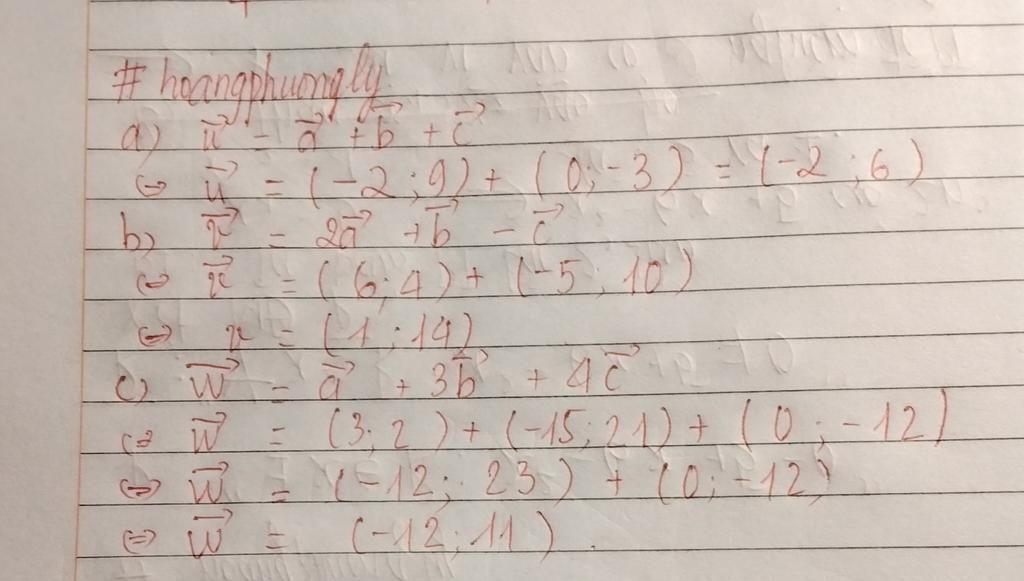 #hoangphuongly
a) $\vec{u} = \vec{a} + \vec{b} + \vec{c}$
⇔ $\vec{u}$ = (-2;9) + (0;-3) = (-2;6)
b) $\vec{v} = 2\vec{a} + \vec{b} - \vec{c}$
⇔ $\vec{v}$ = (6;4) + (-5;10)
⇔ v = (1;14)
c) $\vec{w} = \vec{a} + 3\vec{b} + 4\vec{c}$
⇔ $\vec{w}$ = (3;2) + (-15;21) + (0;-12)
⇔ $\vec{w}$ = (-12;23) + (0;-12)
⇔ $\vec{w}$ = (-12;11).